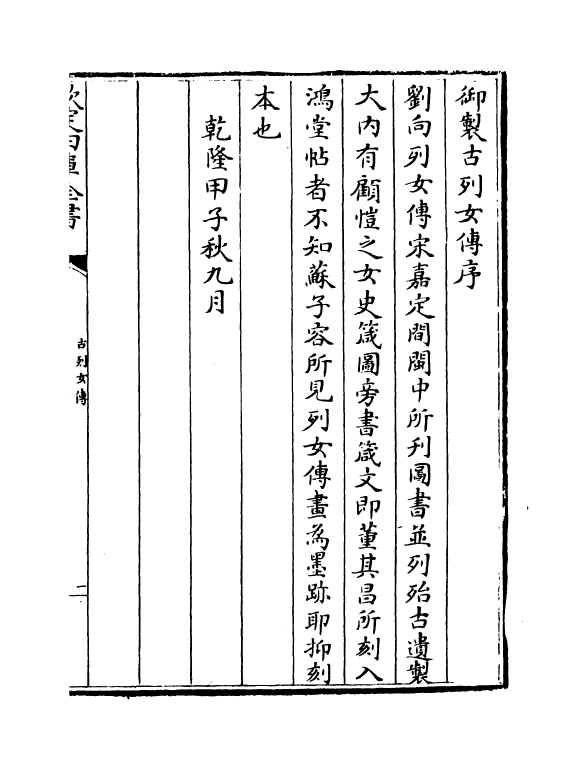 御製古列女傳序
劉向列女傳宋嘉定間閩中所刋圖書並列殆古遺製
大內有顧愷之女史箴圖旁書箴文即董其昌所刻入
鴻堂帖者不知蘇子容所見列女傳畫為墨跡耶抑刻
本也
乾隆甲子秋九月
欽定四庫全書
古列女傳
二